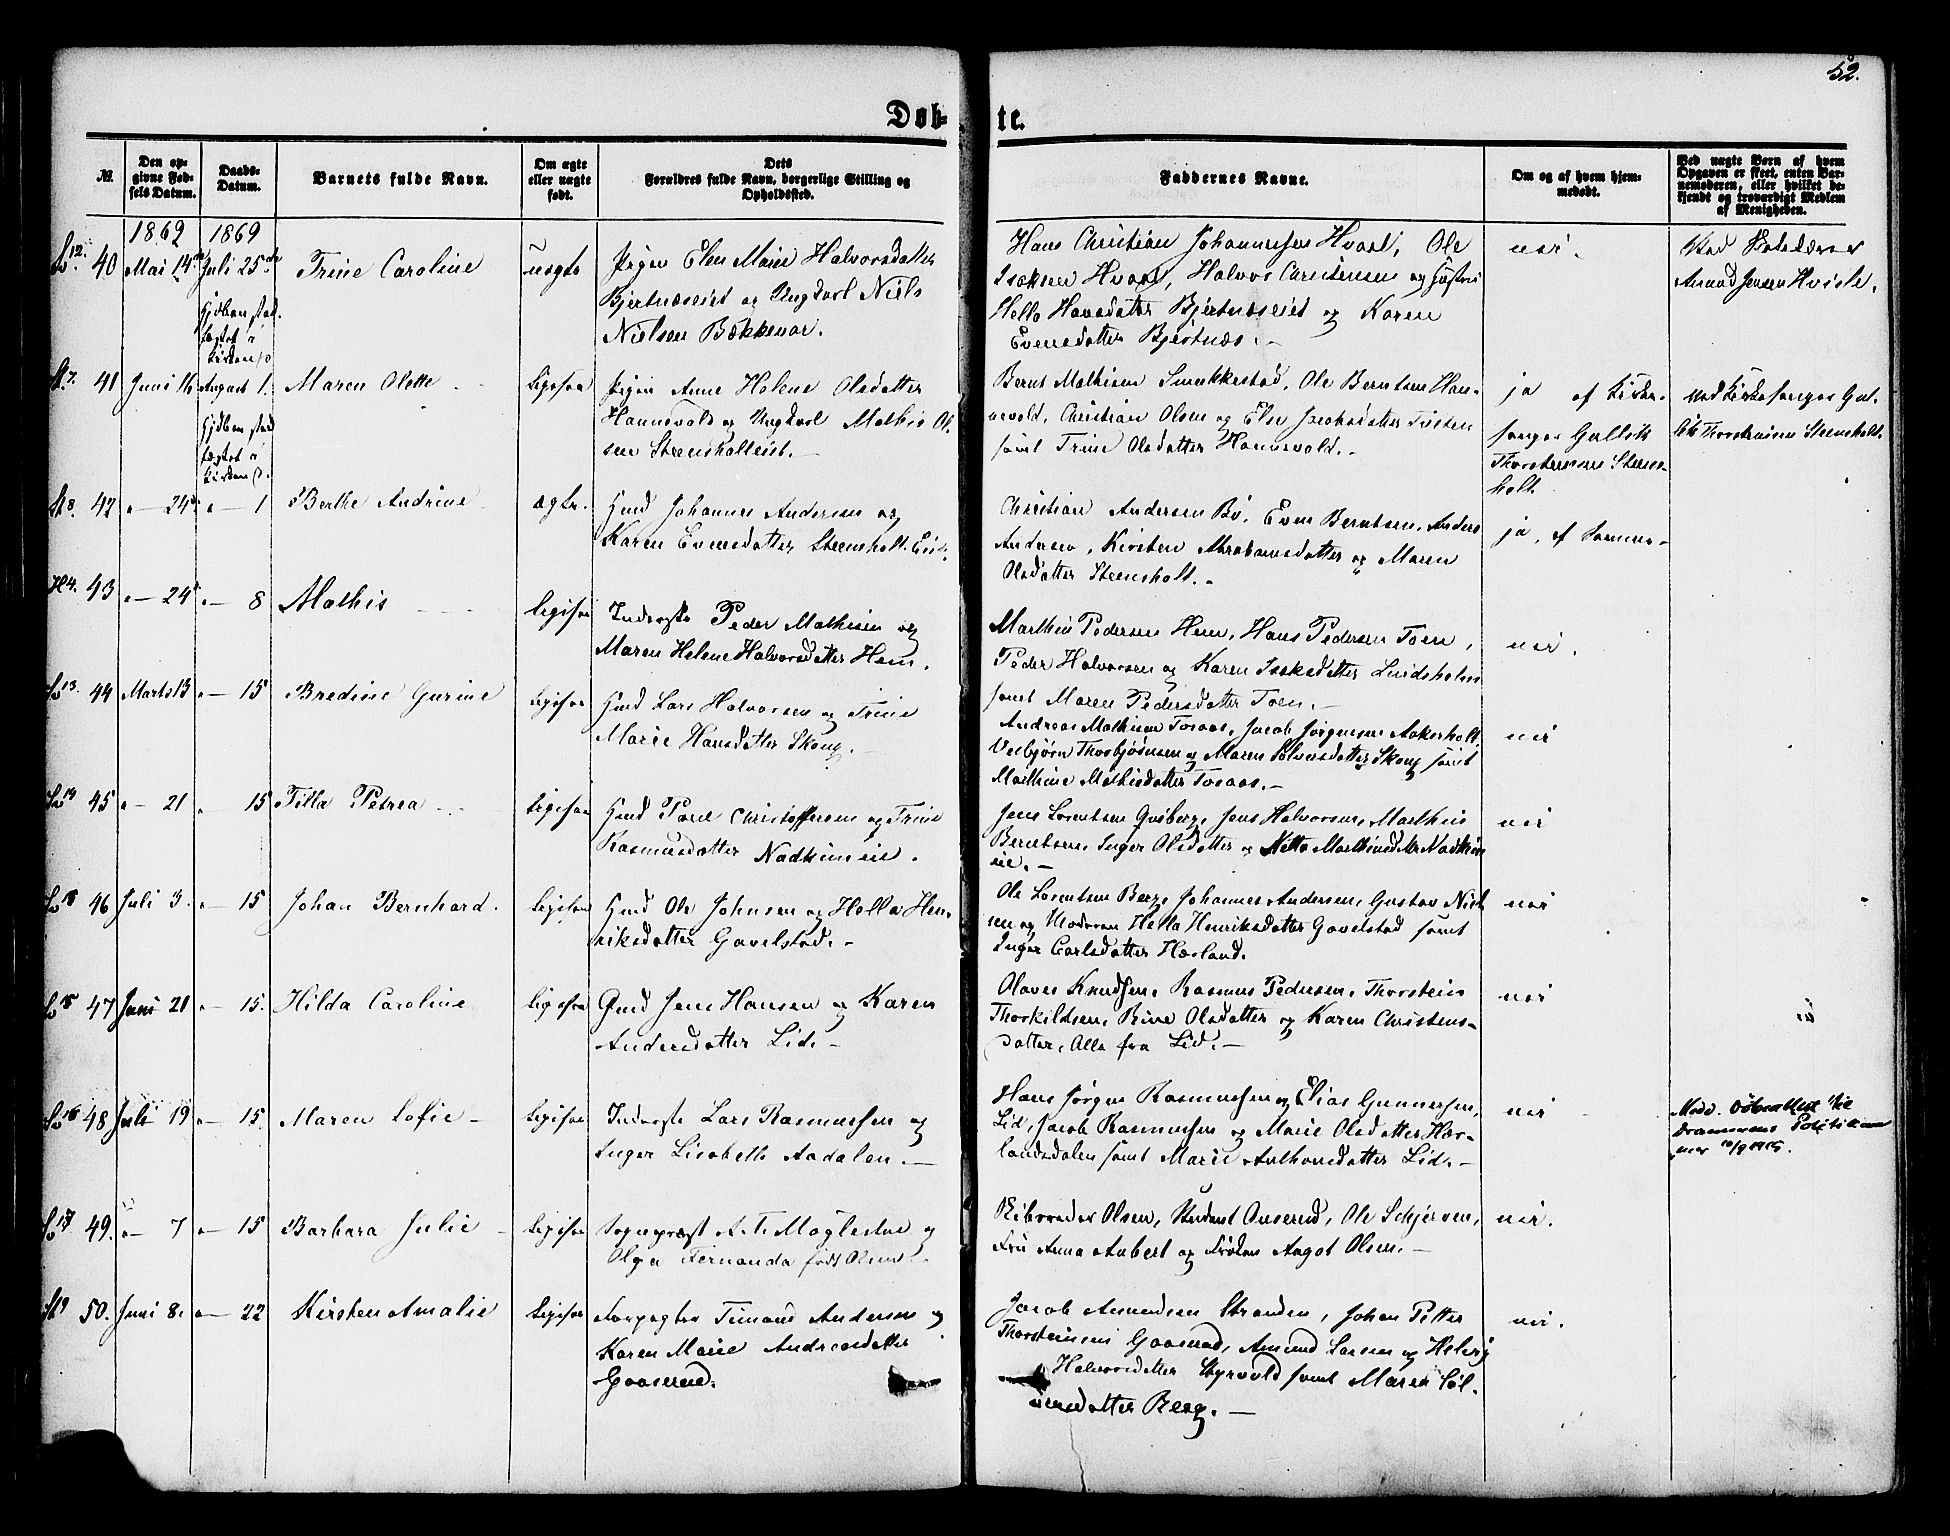 52.
Døb-
te.
№
Den op-
givne Fød-
sels Datum.
Daabs-
Datum.
Barnets fulde Navn.
Om ægte
eller uægte
født.
Dets
Forældres fulde Navn, borgerlige Stilling og
Opholdssted.
Faddernes Navne.
Om og af hvem hjem-
medøbt.
Ved uægte Børn af hvem
Opgaven er skeet, enten Bar-
nemoderen, eller hvilket be-
kjendt og troværdigt Medlem
af Menigheden.
1869 1869
12. 40 Mai 14 Juli 25 Trine Caroline uægte
Pigen Elen Marie Halvorsdatter
Bjertnæseiet og Ungkarl Niels
Nielsen Bækkevar.
Hans Christian Johannesen Hvaal, Ole
Isaksen Hvaal, Halvor Christensen og
Helle Hansdatter Bjertnæseiet og Karen
Evensdatter Bjertnæs.
nei.
Ved
Amund Jensen Hvisle.
7. 41 Juni 16 August 1. Maren Olette ligesaa
Pigen Anne Helene Olsdatter
Hannevold og Ungkarl Mathis Ol-
sen Steensholteiet.
Bernt Mathisen Smukkestad, Ole Berntsen Han-
nevold, Christian Olsen og Else Jacobsdatter Tveten
samt Trine Olsdatter Hannevold.
ja af Kirke-
sanger Gullik
Thorstensen Steens-
holt.
ved Kirkesanger Gul-
lik Thorstensen Steensholt.
8. 42 " — 24 " — 1 Berthe Andrine ægte.
Gmd Johannes Andersen og
Karen Evensdatter Steensholt. Eie.
Christian Andersen Bø, Even Berntsen, Anders
Andersen, Kirsten Abrahamsdatter og Maren
Olsdatter Steensholt.
ja, af samme
4. 43 " — 24 " — 8 Mathis ligesaa
Inderste Peder Mathisen og
Maren Helene Halvorsdatter Hem.
Mathis Pedersen Hem, Hans Pedersen Toen,
Peder Halvorsen og Karen Isaksdatter Lindsholm
samt Maren Pedersdatter Toen.
nei.
13. 44 Marts 13 " — 15 Bredine Gurine ligesaa
Gmd Lars Halvorsen og Trine
Marie Hansdatter Skoug.
Andreas Mathisen Tosaas, Jacob Jørgensen Aakerholt
Veibjørn Thorbjørnsen og Maren Sølvensdatter Skoug samt
Mathine Mathisdatter Tosaas.
nei
14 45 " — 21 " 15 Tilla Petrea ligesaa
Gmd Povel Christoffersen og Trine
Rasmusdatter Nadheimeie.
Jens Lorentsen Gusberg, Jens Halvorsen, Mathis
Berntsen, Inger Olsdatter og
eie.
nei
46 Juli 3. " — 15 Johan Bernhard. ligesaa
Gmd Ole Johnsen og Hella Hen-
riksdatter Gavelstad.
Ole Lorentsen Berg, Johannes Andersen, Gustav Niel-
sen og Moderen Hella Henriksdatter Gavelstad samt
Inger Carlsdatter Hærland.
nei
15 47 Juni 21 " — 15. Hilda Caroline ligesaa
Gmd Jens Hansen og Karen
Andersdatter Lid.
Olaves Knudsen, Rasmus Pedersen, Thorstein
Thorkildsen, Rine Olsdatter og Karen Christens-
datter, Alle fra Lid.
nei
16 48 Juli 19 " — 15. Maren Sofie ligesaa
Inderste Lars Rasmussen og
Inger Lisabeth Aadalen.
Hans Jørgen Rasmussen og Elias Gunnersen,
Lid, Jacob Rasmussen og Marie Olsdatter Hær-
landsdalen samt Marie Anthonsdatter Lid.
nei
Medd. Døbeattest til
Drammens
17 49. " — 7 " — 15 Barbara Julie ligesaa
Sogneprest A. T. Maglestue og
Olga Fernanda født Olsen.
Olsen, Student Onserud, Ole Schjerven,
Fru Anna Aubert og Frøken Aagot Olsen.
nei.
9 50. Juni 8. " — 22 Kirsten Amalie ligesaa
Forpagter Timand Andersen og
Karen Marie Andreasdatter
Gaaserud.
Jacob Amundsen Stranden, Johan Petter
Thorsteinsen Gaaserud, Amund Larsen og Helvig
Halvorsdatter Styrvold samt Maren Søl-
vensdatter Berg.
nei.